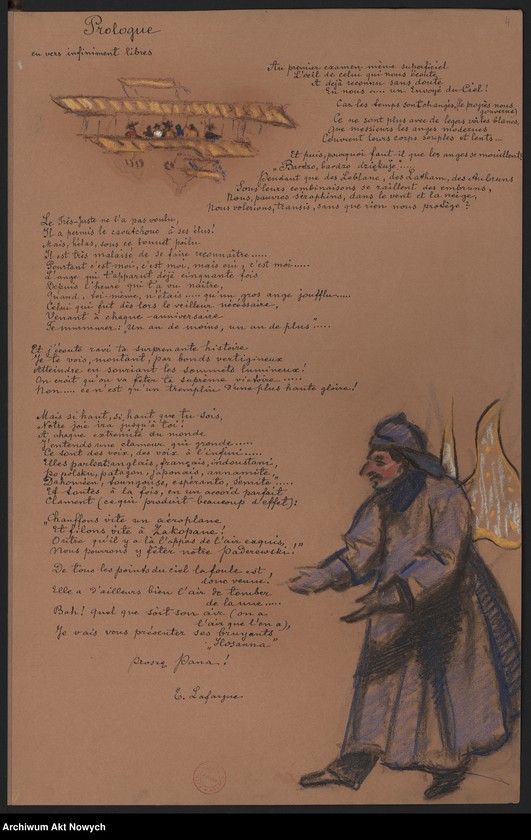 Prologue
en vers infiniment libres
Au premier examen, même superficiel
L'oeil de celui qui nous écoute
A déjà reconnu sans doute
En nous un Envoyé du Ciel!
Car les temps sont changés, le progrès nous gouverne
Ce ne sont plus avec de légers voiles blancs,
Que messieurs les anges modernes
Couvrent leurs corps souples et lents
Et puis, pourquoi faut-il que les anges se mouillent
"Bardzo, bardzo dziękuję"
Pendant que des Leblanc, des Latham, des Aubruns
Sous leurs combinaisons se raillent des embruns,
Nous, pauvres séraphins, dans le vent et la neige,
Nous volerions, transis, sans que rien nous protège?
Le Très-Juste ne l'a pas voulu,
Il a permis le caoutchouc à ses élus!
Mais, hélas, sous ce bonnet poilu
Il est très malaisé de se faire reconnaître.....
Pourtant c'est moi, c'est moi, mais oui, c'est moi.....
L'ange qui t'apparut déjà cinquante fois
Depuis l'heure qui t'a vu naître,
Quand, toi-même, n'étais..... qu'un gros ange joufflu.....
Celui qui fut dès lors le veilleur nécessaire,
Venant à chaque anniversaire
Te murmurer: "Un an de moins, un an de plus".....
Et j'écoute ravi ta surprenante histoire
Je te vois, montant, par bonds vertigineux
Atteindre en souriant les sommets lumineux!
On croit qu'on va fêter ta suprême victoire.....
Non.... ce n'est qu'un tremplin d'une plus haute gloire!
Mais si haut, si haut que tu sois,
Notre joie ira jusqu'à toi!
A chaque extrémité du monde
J'entends une clameur qui gronde.....
Ce sont des voix, des voix à l'infini.....
Elles parlent anglais, français, indoustani,
Po polsku, patagon, japonais, annamite,
Dahoméen, toungouse, espéranto, sémite".....
Et toutes à la fois, en un accord parfait
Clament (ce qui produit beaucoup d'effet):
"Chauffons vite un aéroplane
Et filons vite à Zakopane!
Outre qu'il y a là l'appas de l'air exquis,
Nous pourrons y fêter notre Paderewski!"
De tous les points du ciel la foule est
donc venue!
Elle a d'ailleurs bien l'air de tomber
de la nue.....
Bah! Quel que soit son air (on a
l'air que l'on a),
Je vais vous présenter ses bruyants
"Hosanna"
Proszę Pana!
E. Lafargue
Archiwum Akt Nowych